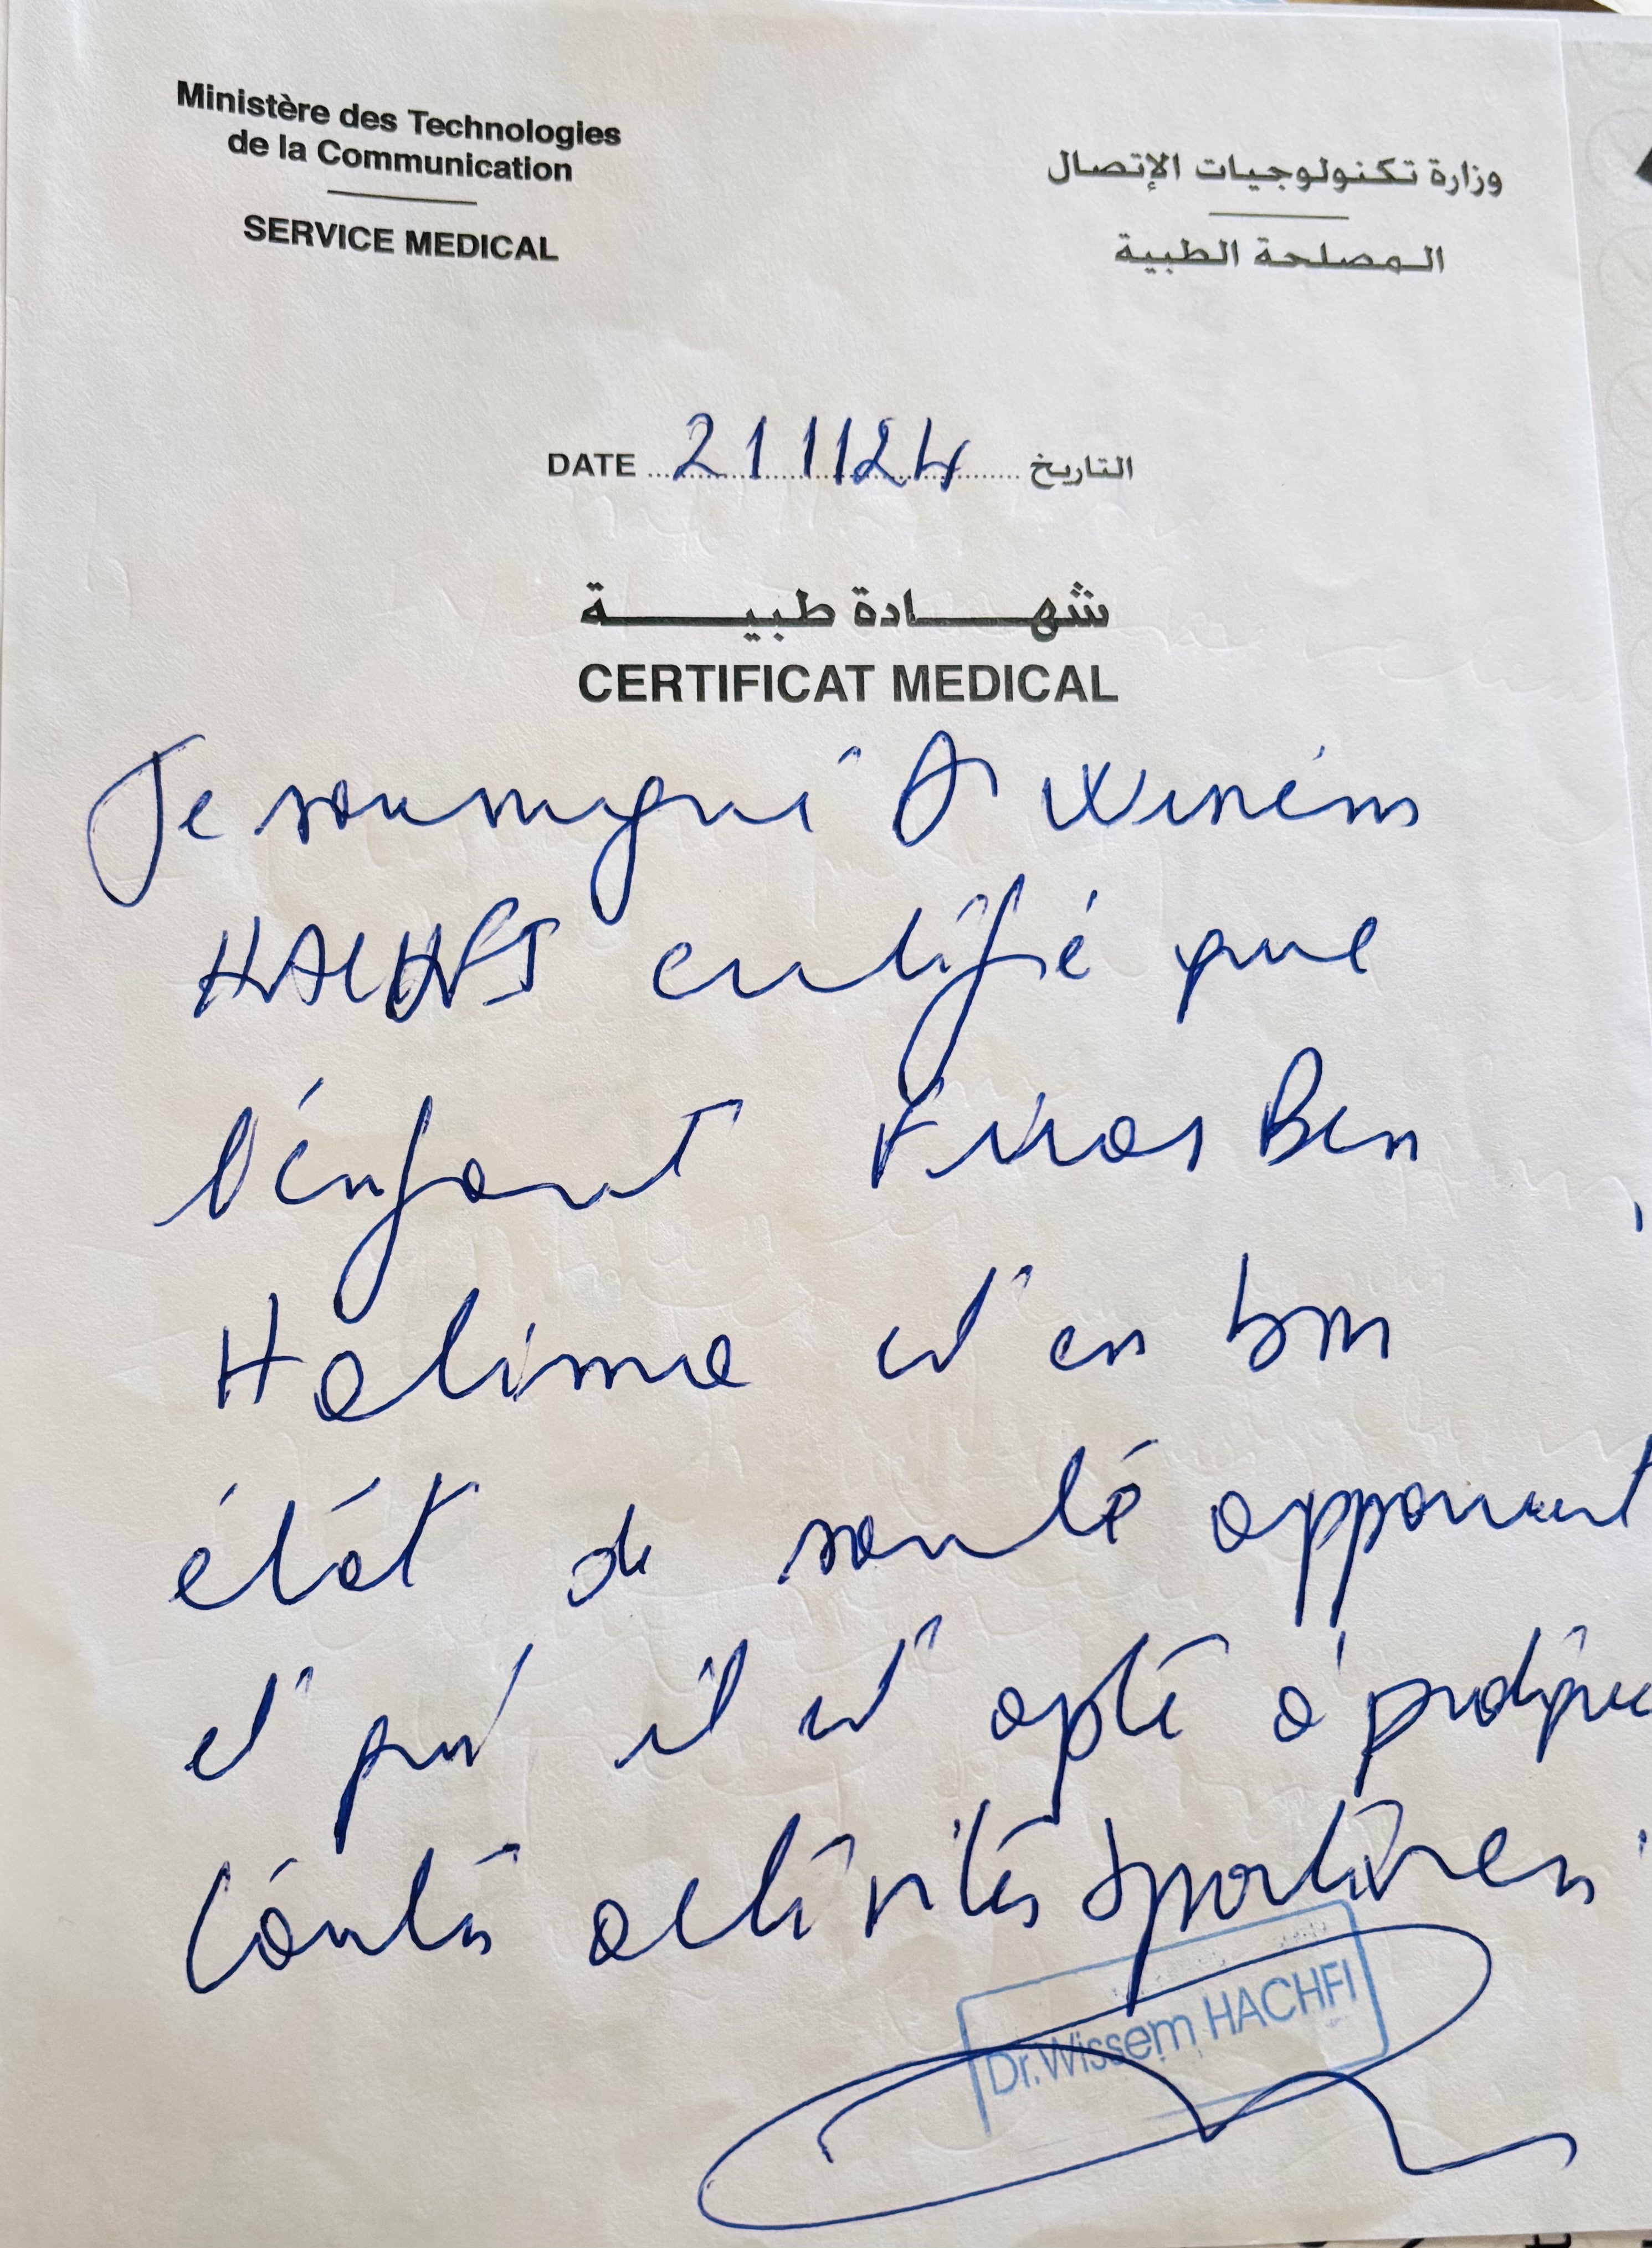 Ministère des Technologies
de la Communication
SERVICE MEDICAL
وزارة تكنولوجيات الإتصال
المصلحة الطبية
DATE 21 11 24 التاريخ
شهادة طبية
CERTIFICAT MEDICAL
Je soussigné Dr Wissem
HACHFI certifie que
l'enfant Firas Ben
Halima est en bon
état de santé apparent
et qu'il est apte à pratiquer
toutes activités sportives.
Dr. Wissem HACHFI